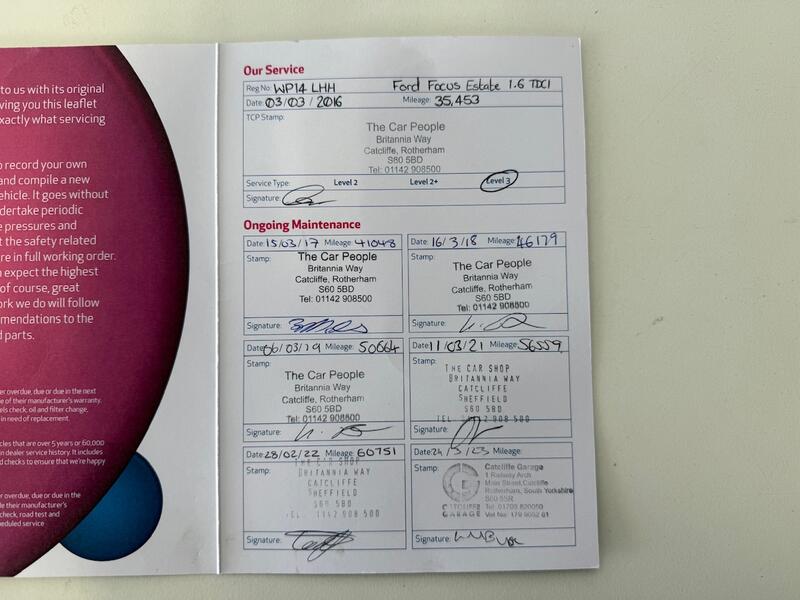 to us with its original
ving you this leaflet
exactly what servicing
o record your own
and compile a new
ehicle. It goes without
ndertake periodic
e pressures and
t the safety related
re in full working order.
n expect the highest
of course, great
ork we do will follow
mmendations to the
d parts.
er overdue, due or due in the next
e of their manufacturer's warranty.
els check, oil and filter change,
in need of replacement.
icles that are over 5 years or 60,000
n dealer service history. It includes
d checks to ensure that we're happy
er overdue, due or due in the
ile their manufacturer's
check, road test and
eduled service
Our Service
Reg No: WP14 LHH Ford Focus Estate 1.6 TDCI
Date: 03/03/2016 Mileage: 35,453
TCP Stamp:
The Car People
Britannia Way
Catcliffe, Rotherham
S60 5BD
Tel: 01142 908500
Service Type: Level 2 Level 2+ Level 3
Signature:
Ongoing Maintenance
Date: 15/03/17 Mileage: 41048
Stamp: The Car People
Britannia Way
Catcliffe, Rotherham
S60 5BD
Tel: 01142 908500
Signature:
Date: 16/3/18 Mileage: 46179
Stamp: The Car People
Britannia Way
Catcliffe, Rotherham
S60 5BD
Tel: 01142 908500
Signature:
Date: 06/03/19 Mileage: 50664
Stamp:
The Car People
Britannia Way
Catcliffe, Rotherham
S60 5BD
Tel: 01142 908500
Signature:
Date: 11/03/21 Mileage: 56559
Stamp: THE CAR SHOP
BRITANNIA WAY
CATCLIFFE
SHEFFIELD
S60 5BD
TEL 01142 908 500
Signature:
Date: 28/02/22 Mileage: 60751
Stamp: THE CAR SHOP
BRITANNIA WAY
CATCLIFFE
SHEFFIELD
S60 5BD
TEL 01142 908 500
Signature:
Date: 24/3/23 Mileage:
Stamp: Catcliffe Garage
1 Railway Arch
Main Street, Catcliffe
Rotherham, South Yorkshire
S60 5SR
Tel: 01709 820050
CATCLIFFE
GARAGE
Signature: